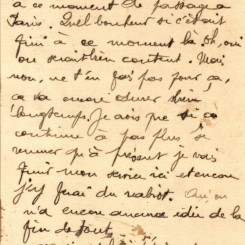 à ce moment de passage à
Paris. Quel bonheur si c'était
fini à ce moment là. Oh, oui
on serait bien content. Mais
non, ne t'en fais pas pour ça,
ça va encore durer bien
longtemps. Je crois que si ça
continue à pas plus se
remuer qu'à présent je vais
finir mon service ici et encore
j'y ferai du rabiot. On
n'a encore aucune idée de la
fin de tout